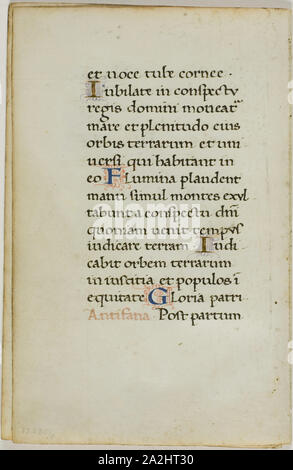 et uoce tube cornee.
Iubilate in conspectu
regis domini moueat
mare et plenitudo eius
orbis terrarum et uni
uersi qui habitant in
eo Flumina plaudent
manu simul montes exul
tabunt a conspectu dm̄
quoniam uenit tempus
iudicare terram Iudi
cabit orbem terrarum
in iusticia et populos ī
equitate Gloria patri
Antifana. Post partum
alamy
www.alamy.com
2A2HT30